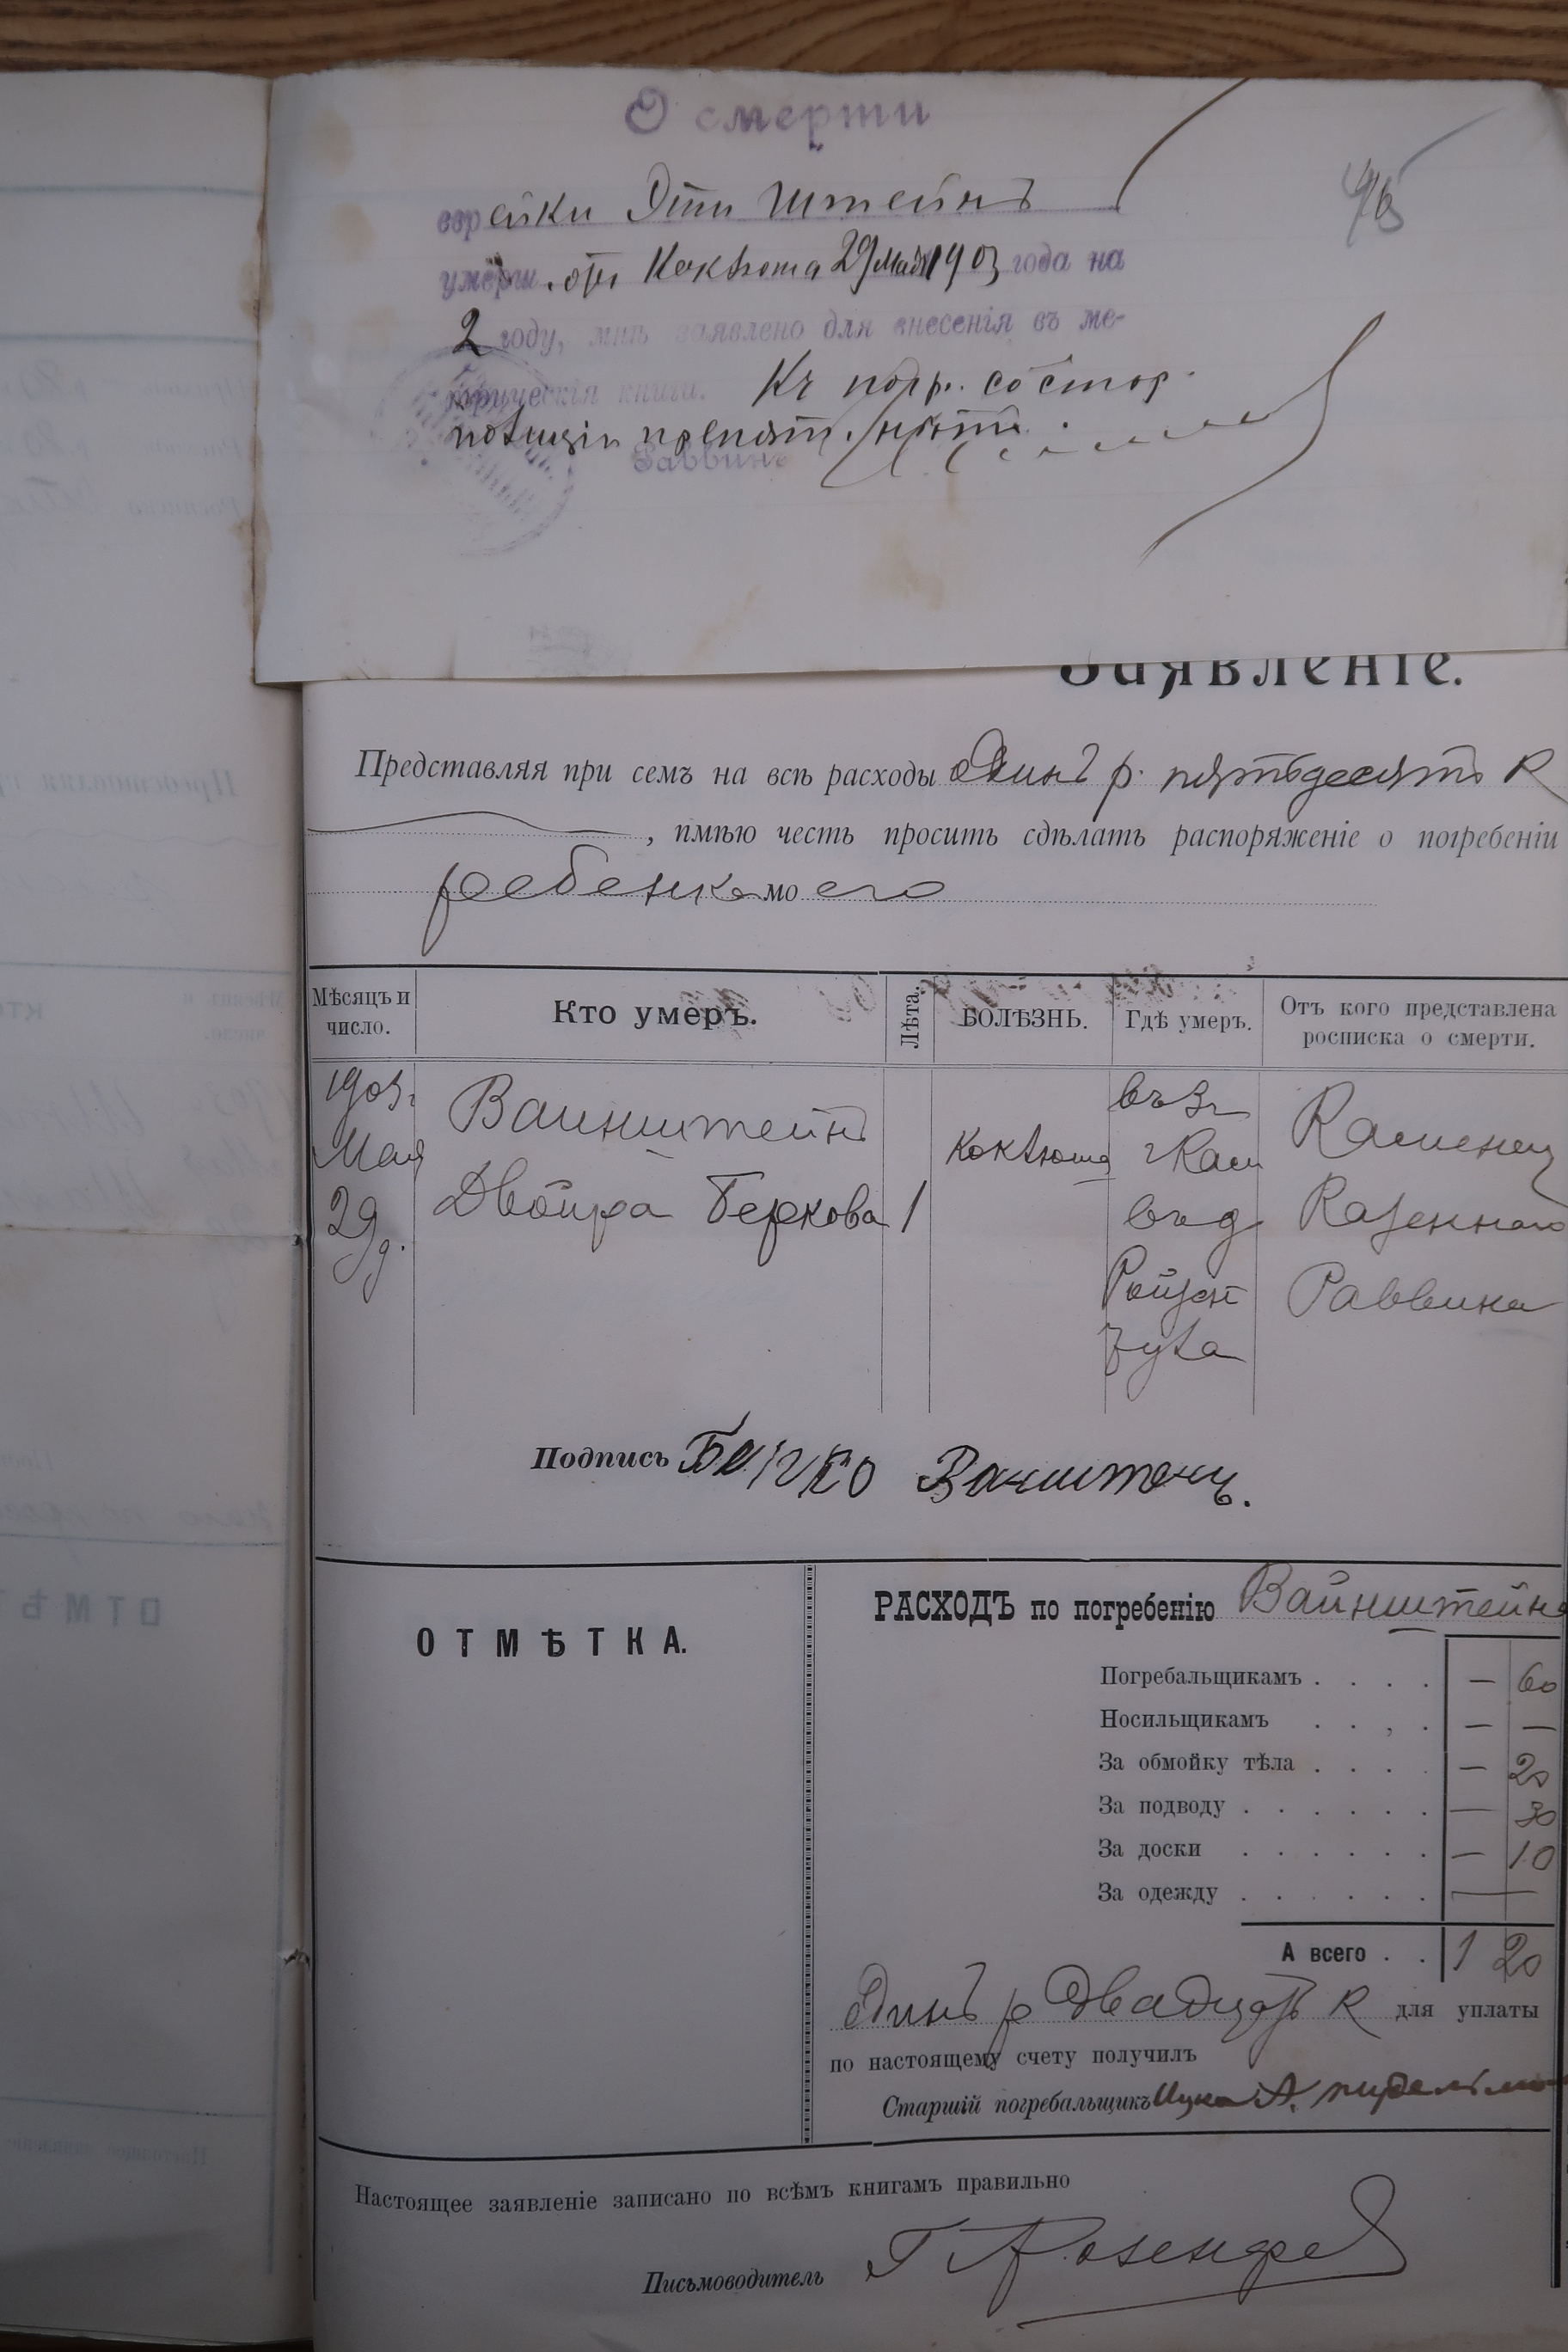 О смерти
еврейки Эти Штейнъ
умерш. отъ Коклюша 29 Мая 1903 года на
2 году, мнѣ заявлено для внесенія въ ме-
трическія книги. Къ погр. со стор.
полиціи препят. нѣтъ.
Раввинъ
Заявленіе.
Представляя при семъ на всѣ расходы Одинъ р. пятьдесятъ к
, имѣю честь просить сдѣлать распоряженіе о погребеніи
ребенка моего
Мѣсяцъ и число. Кто умеръ. Лѣта. БОЛѢЗНЬ. Гдѣ умеръ. Отъ кого представлена росписка о смерти.
1903 г
Ваинштейнъ
Мая Коклюша
29 д. Двойра Беркова 1 въ д
Казеннаго
Раввина
Подпись
ОТМѢТКА.
РАСХОДЪ по погребенію Вайнштейна
Погребальщикамъ . . . . — 60
Носильщикамъ . . , . — —
За обмойку тѣла . . . . — 20
За подводу . . . . . . — 30
За доски . . . . . . — 10
За одежду . . . . . . —
А всего . . 1 20
Одинъ р Двадцать к для уплаты
по настоящему счету получилъ
Старшій погребальщикъ
Настоящее заявленіе записано по всѣмъ книгамъ правильно
Письмоводитель